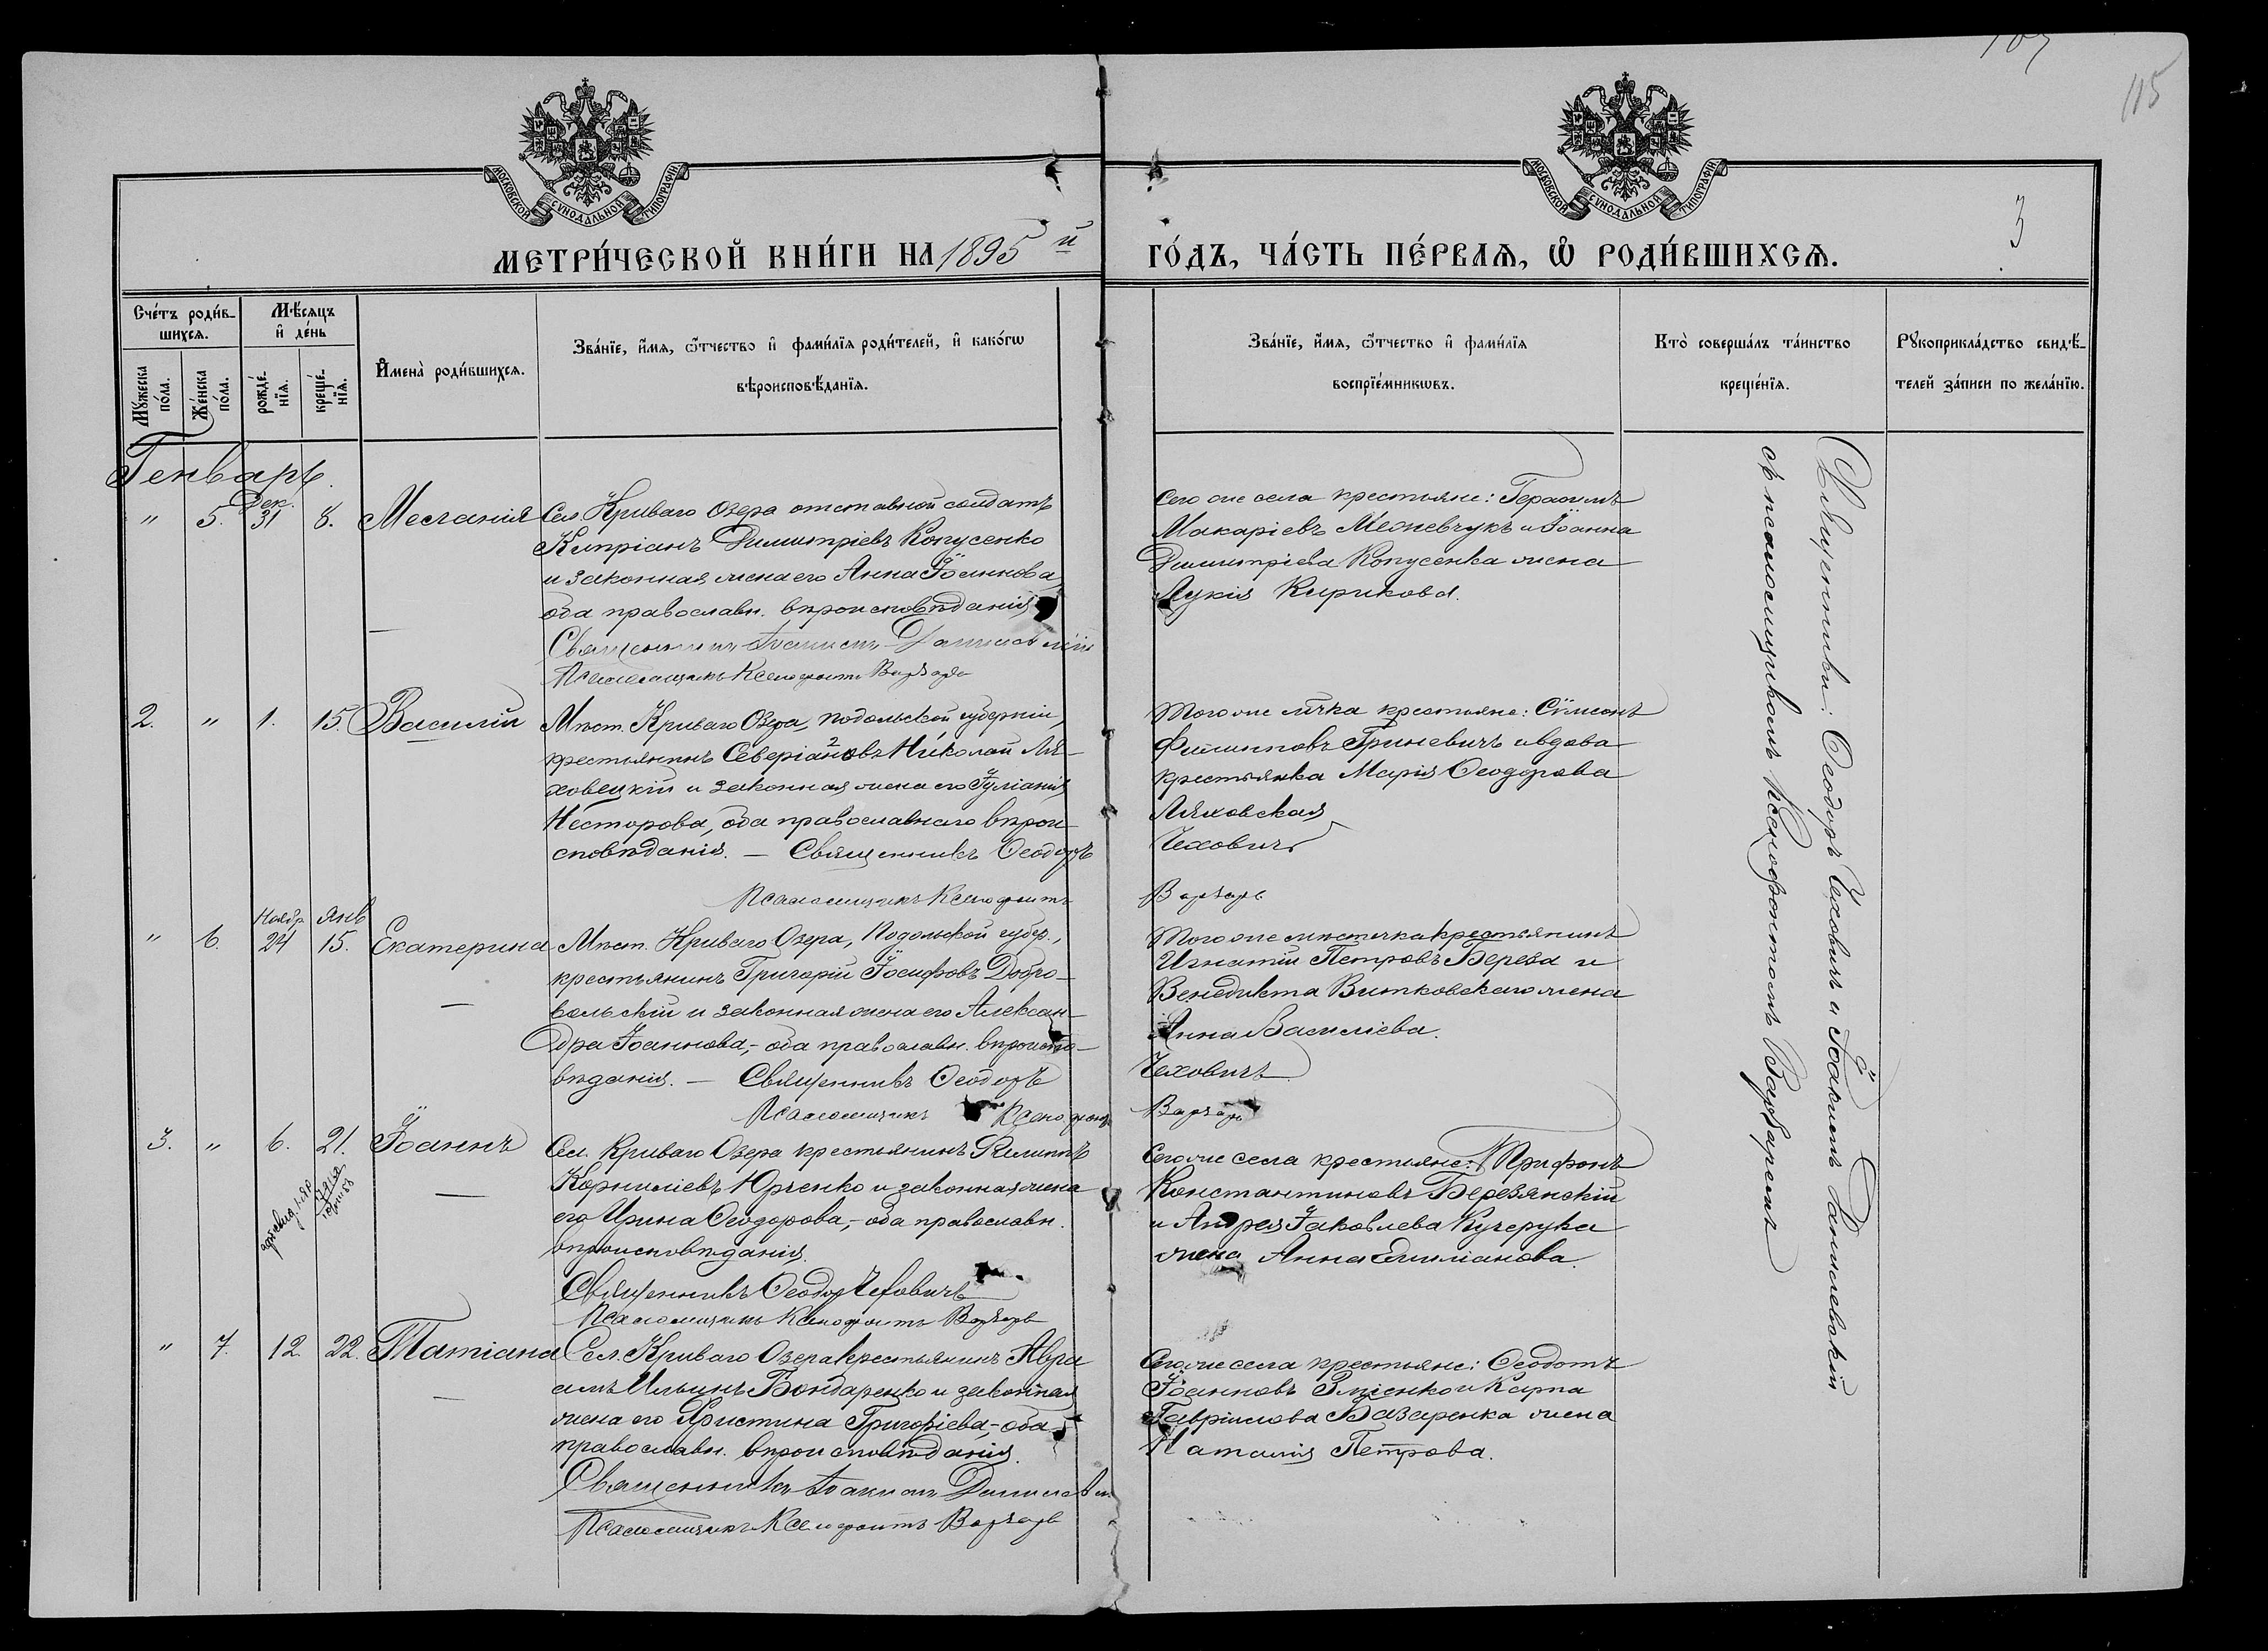 107
115
3
МОСКОВСКОЙ СѴНОДАЛЬНОЙ ТИПОГРАФІИ
МОСКОВСКОЙ СѴНОДАЛЬНОЙ ТИПОГРАФІИ
МЕТРИ́ЧЕСКОЙ КНИ́ГИ НА 1895 й ГО́ДЪ, ЧА́СТЬ ПЕ́РВАѦ, Ѽ РОДИ́ВШИХСѦ.
Сче́тъ роди́в-
шихсѧ.
Мꙋ́жеска по́ла.
Же́нска по́ла.
Мѣ́сѧцъ
и҆ де́нь
рожде́-нїѧ.
креще́-нїѧ.
И҆мена̀ роди́вшихсѧ.
Зва́нїе, и҆́мѧ, ѻ҆́тчество и҆ фами́лїѧ роди́телей, и҆ како́гѡ
вѣроисповѣ́данїѧ.
Зва́нїе, и҆́мѧ, ѻ҆́тчество и҆ фами́лїѧ
воспрїе́мникѡвъ.
Кто̀ соверша́лъ та́инство
креще́нїѧ.
Рꙋкоприкла́дство свидѣ́-
телей за́писи по жела́нїю.
Генварь.
" 5. Дек. 31 8. Меланія
Сел. Криваго Озера отставной солдатъ
Кипріанъ Димитріевъ Копусенко
и законная жена его Анна Іоаннова
оба православн. вѣроисповѣданія
Священникъ Іоакимъ Данилевскій
Псаломщикъ Ксенофонтъ Варварь
Сего же села крестьяне: Герасимъ
Макаріевъ Межевчукъ и Іоанна
Димитріева Копусенка жена
Лукія Кирикова.
2. " 1. 15. Василій
Мѣст. Криваго Озера, Подольской губерніи,
крестьянинъ Северіановъ Николай Ля-
ховецкій и законная жена его Іуліанія
Несторова, оба православнаго вѣрои-
сповѣданія. — Священникъ Ѳеодоръ
Псаломщикъ Ксенофонтъ
Того же м-чка крестьяне: Симеонъ
Филипповъ Гриневичъ и вдова
крестьянка Марія Ѳеодорова
Ляховская
Чеховичъ
Варварь
" 6. Ноябр. 24 Янв 15. Екатерина
Мѣст. Криваго Озера, Подольской губер.,
крестьянинъ Григорій Іосифовъ Добро-
вольскій и законная жена его Алексан-
дра Іоаннова, – оба православн. вѣроиспо-
вѣданія. — Священникъ Ѳеодоръ
Псаломщикъ Ксенофонтъ
Того же мѣстечка крестьянинъ
Игнатій Петровъ Береза и
Венедикта Витковскаго жена
Анна Василіева.
Чеховичъ
Варварь
3. " 6. 21. Іоаннъ
Сел. Криваго Озера крестьянинъ Филиппъ
Корниліевъ Юрченко и законная жена
его Ирина Ѳеодорова, – оба православн.
вѣроисповѣданія.
Священникъ Ѳеодор Чеховичъ
Псаломщикъ Ксенофонтъ Варварь
Сего же села крестьяне: Трифонъ
Константиновъ Березянскій
и Андрея Іаковлева Кучерука
жена Анна Емиліанова.
" 7. 12. 22. Татіана
Сел. Криваго Озера крестьянинъ Авра-
амъ Ильинъ Бондаренко и законная
жена его Христина Григоріева, – оба
православн. вѣроисповѣданія.
Священникъ Іоакимъ Данилевскій
Псаломщикъ Ксенофонтъ Варварь
Сего же села крестьяне: Ѳеодотъ
Іоанновъ Зміенко и Карпа
Гавріилова Базаренка жена
Наталія Петрова.
Священники: Ѳеодоръ Чеховичъ и Іоакимъ Данилевскій
съ псаломщикомъ Ксенофонтомъ Варваремъ